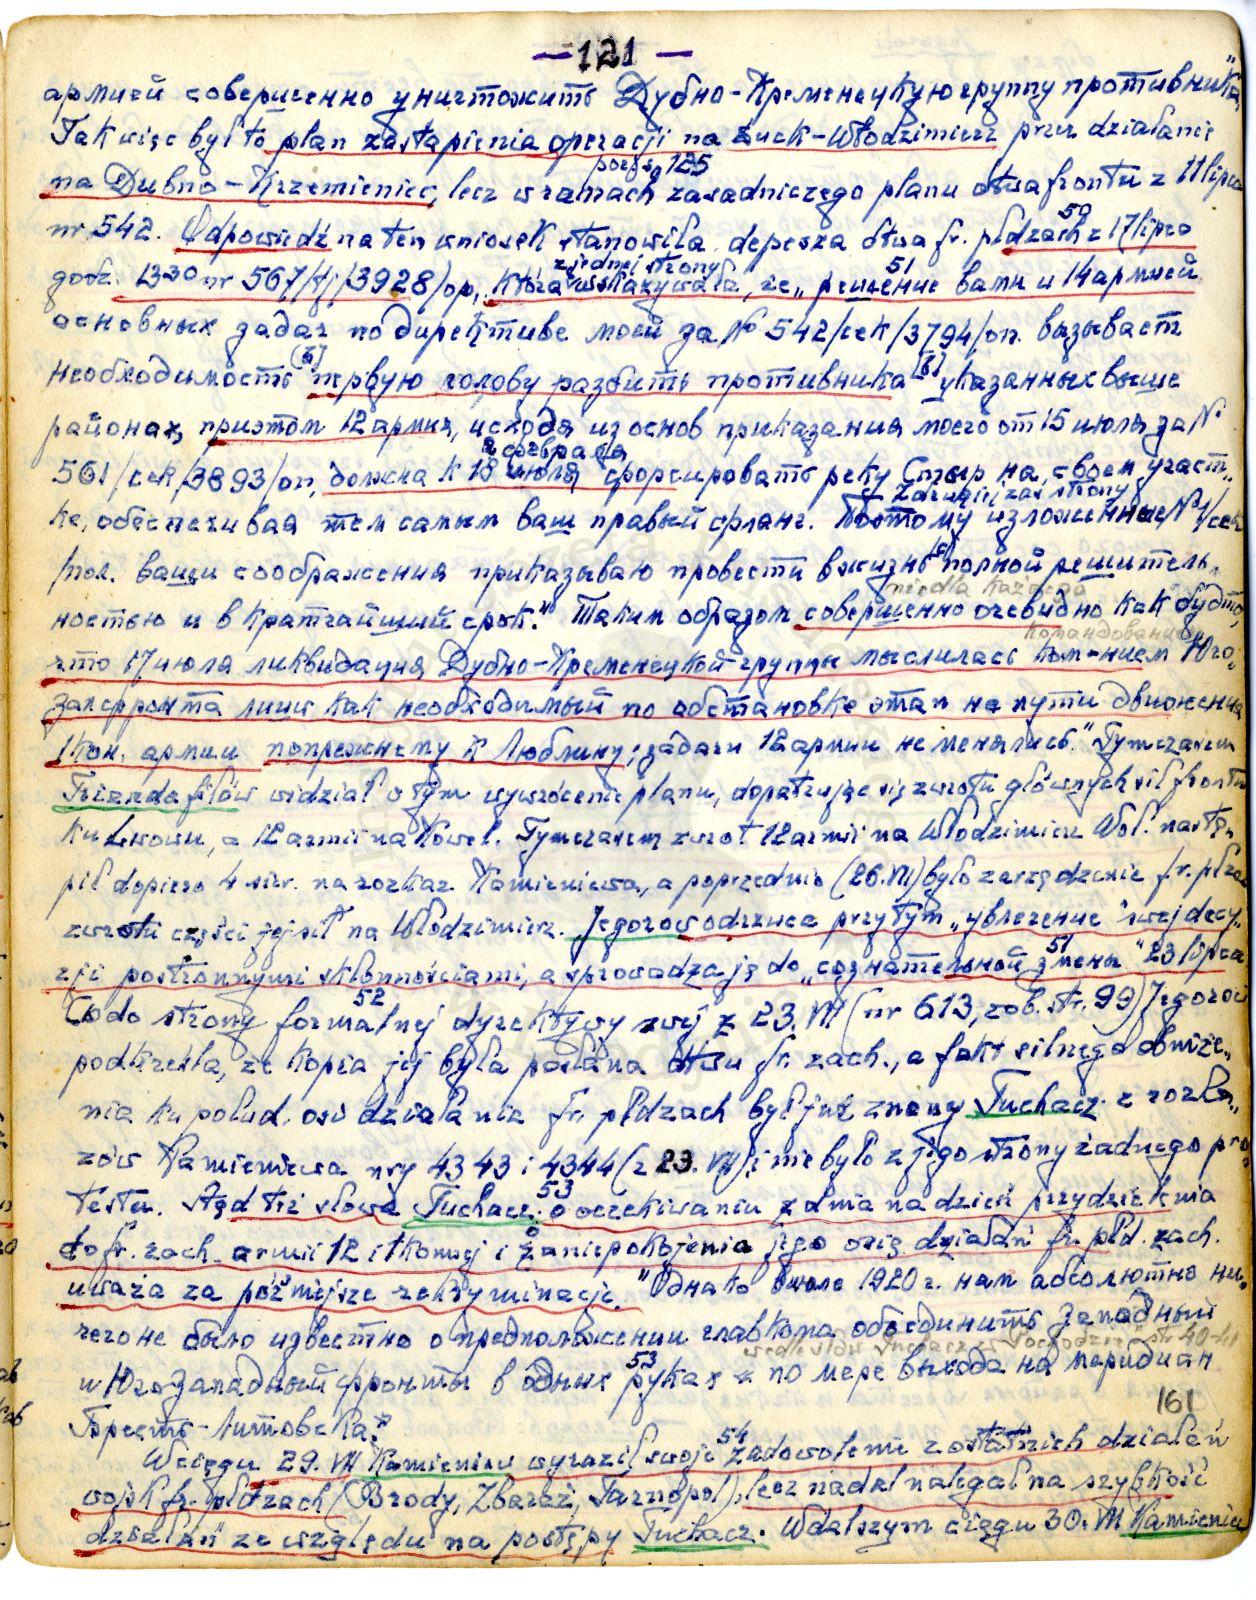 — 121 —
армией совершенно уничтожить Дубно-Кременецкую группу противника"
Tak więc był to plan zastąpienia operacji na Łuck-Włodzimierz przez działanie
por. str. 125
na Dubno-Krzemieniec, lecz w ramach zasadniczego planu dtwa frontu z 11 lipca
nr 542. Odpowiedź na ten wniosek stanowiła depesza dtwa fr. płdzach 50 z 17 lipca
z jednej strony
godz. 13 30 nr 567/ /3928/op., która wskazywała, że „решение 51 вами и 14 армией
основных задач по директиве моей за № 542/сек/3794/оп. вызывает
необходимость первую голову разбить противника указанных выше
районах, при этом 12 армия, исходя из основ приказания моего от 15 июля за №
561/сек/3893/оп, должна к 18 июля форсировать реку Стырь на своем участ-
z drugiej zaś strony
ке, обеспечивая тем самым ваш правый фланг. Поэтому изложенные № 1/сек
/пол. ваши соображения приказываю провести в жизнь с полной решитель-
nie dla każdego
ностью и в кратчайший срок." Таким образом совершенно очевидно как будто,
командованием
что 17 июля ликвидация Дубно-Кременецкой группы мыслилась ком-нием Юго-
запфронта лишь как необходимый по обстановке этап на пути движения
1 кон. армии попрежнему к Люблину; задачи 12 армии не менялись." Tymczasem
Triandafiłow widział o tym wywrócenie planu, dopatrując się zwrotu głównych sił frontu
ku Lwowu, a 12 armii na Kowel. Tymczasem zwrot 12 armii na Włodzimierz Woł. nastą-
pił dopiero 4 sier. na rozkaz Kamieniewa, a poprzednio (26.VII) było zarządzenie fr. płzach
zwrotu części jej sił na Włodzimierz. Jegorow odrzuca przy tym „увлечение" swej decy-
zji postronnymi skłonnościami, a sprowadza ją do „сознательной смены" 51 23 lipca
Co do strony formalnej 52 dyrektywy swej z 23.VII (nr 613, zob. str. 99) Jegorow
podkreśla, że kopia jej była posłana dtwu fr. zach., a fakt silnego obniże-
nia ku połud. osi działania fr. płdzach był już znany Tuchacz. z rozka-
zów Kamieniewa nry 4343 i 4344 (z 23. VII) i nie było z jego strony żadnego pro-
testu. Stąd też słowa Tuchacz. 53 o oczekiwaniu z dnia na dzień przydzielenia
do fr. zach. armii 12 i 1 konnej i zaniepokojenia jego osią działań fr. płd. zach.
uważa za późniejsze rekryminacje. "Однако в июле 1920 г. нам абсолютно ни-
чего не было известно о предположении главкома объединить Западный
wedle słów Tuchacz. w Pochodzie str 40-41
и Югозападный фронты в одних руках 53 по мере выхода на меридиан
Брест-Литовска."
161
W ciągu 29. VII Kamieniew wyraził swoje 54 zadowolenie z ostatnich działań
wojsk fr. płdzach (Brody, Zbaraż, Tarnopol), lecz nadal nalegał na szybkość
działań ze względu na postępy Tuchacz. W dalszym ciągu 30. VII Kamieniew